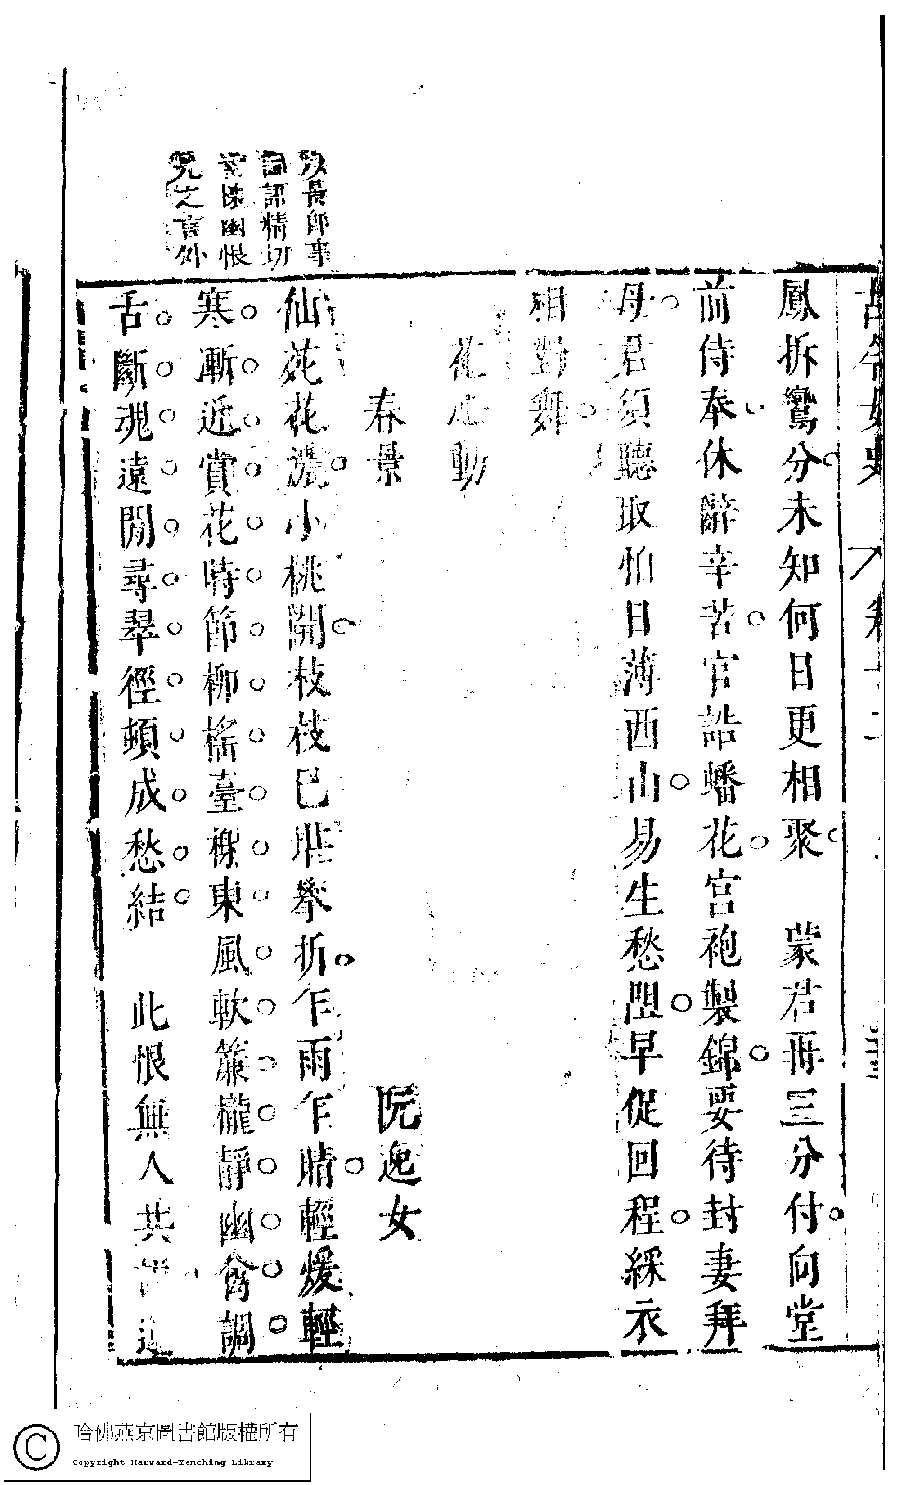 古今女史 卷十二
鳳拆鸞分未知何日更相聚　蒙君再三分付向堂
前侍奉休辭辛苦官誥蟠花宮袍製錦要待封妻拜
母君須聽取怕日薄西山易生愁阻早促回程綵衣
相對舞
花心動
春景　阮逸女
仙苑花濃小桃開枝枝已堪攀折乍雨乍晴輕煖輕
寒漸近賞花時節柳搖臺榭東風軟簾櫳靜幽禽調
舌斷魂遠閒尋翠徑頓成愁結　此恨無人共說還
景即事
精切
幽恨
見之言外
哈佛燕京圖書館版權所有
Copyright Harvard-Yenching Library